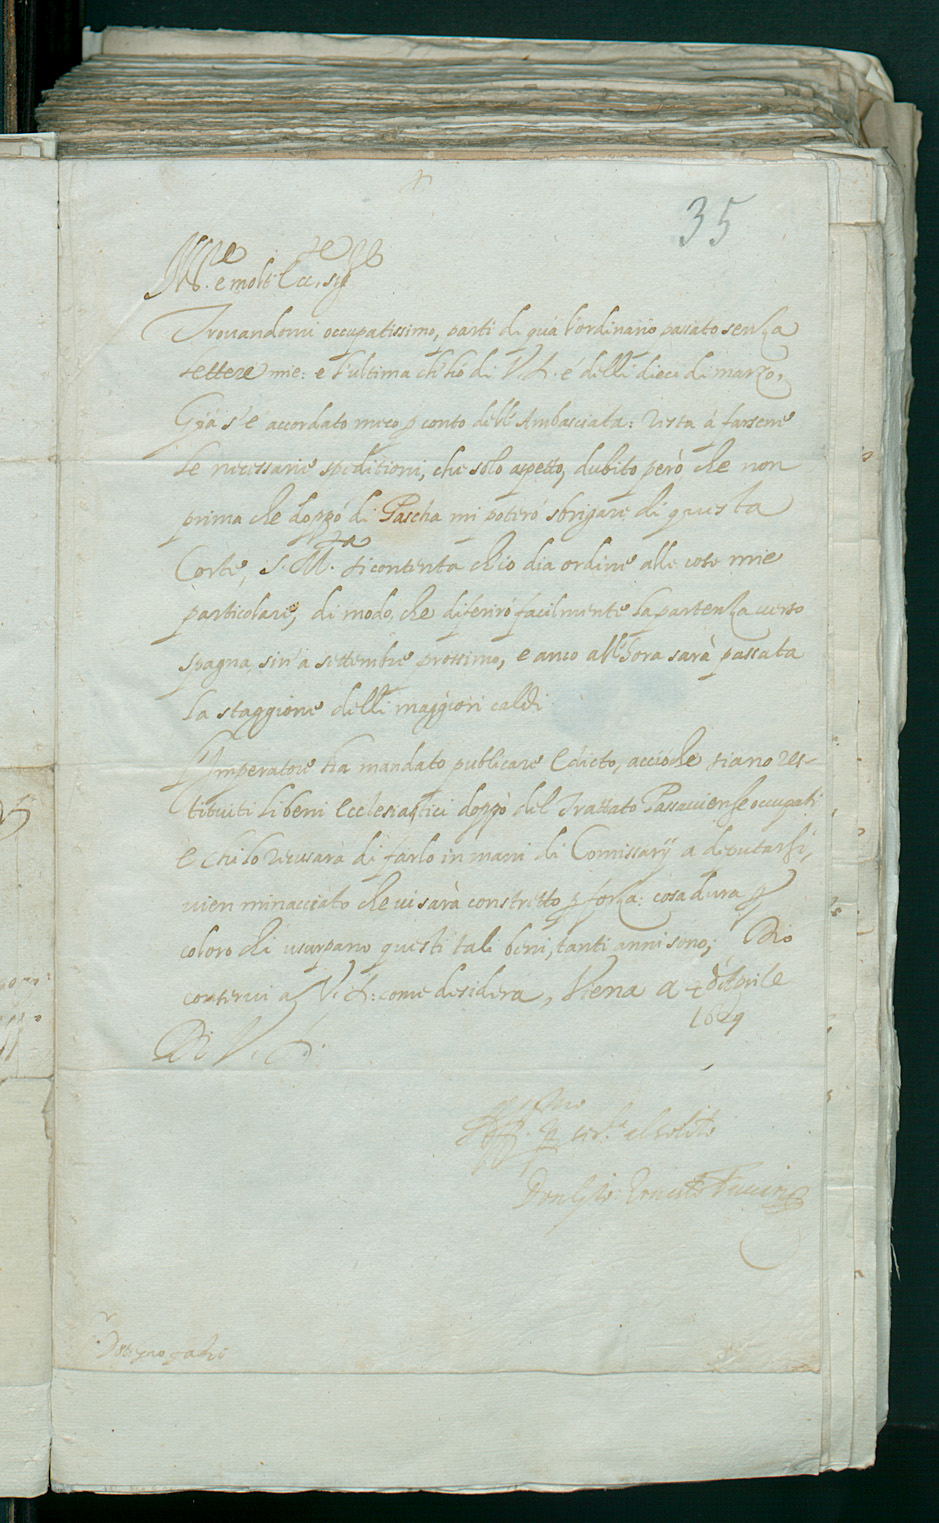 35
Ill.re e molt' Ecc.te sig.r
Trouandomi occupatissimo, parti di quà l'ordinario passato senza
lettere mie: e l'ultima ch'hò di V.S. é delli dieci di marzo,
Già s'é accordato meco p conto dell'Ambasciata: resta á farsene
le necessarie speditioni, che solo aspetto, dubito però che non
prima che doppó di Pascha mi poteró sbrigare di questa
Corte, S. M.tà si contenta ch'io dia ordine alle cose mie
particolari, di modo, che diferiró facilmente la partenza uerso
spagna sin'á settembre prossimo, e anco all'hora sarà passata
la staggione delli maggiori caldi
L'Imperatore ha mandato publicare Edicto, accioche siano res-
tituiti li beni Ecclesiastici doppò del Trattato Passauiense occupati
e chi lo recusarà di farlo in mani di Comissarij a deputarsi,
uien minacciato che ui sarà constretto p forza: cosa dura p
coloro chi usurpano questi tali beni, tanti anni sono; Dio
conserui a V.S. come desidera, Viena a 7 d'Aprile
1629
Di V. S.
Aff.mo al solito
Don